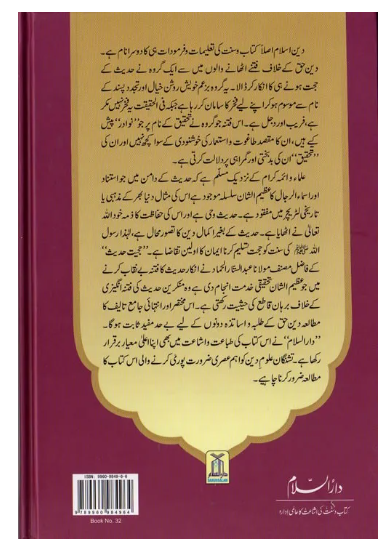 دین اسلام اصلاً کتاب و سنت کی تعلیمات و فرمودات ہی کا دوسرا نام ہے۔
دین حق کے خلاف فتنے اٹھانے والوں میں سے ایک گروہ نے حدیث کے
حجت ہونے ہی کا انکار کر ڈالا۔ یہ گروہ بزعم خویش روشن خیال و تجدد پسند کے
نام سے موسوم ہو کر اپنے لیے فخر کا سامان کر رہا ہے جبکہ فی الحقیقت یہ فخر نہیں مکر
ہے، فریب اور دجل ہے۔ اس فتنہ جو گروہ نے تحقیق کے نام پر جو ”نوادر“ پیش
کیے ہیں، ان کا مقصد طاغوت و استعمار کی خوشنودی کے سوا کچھ نہیں اور ان کی
”تحقیق“ ان کی بدبختی اور گمراہی پر دلالت کرتی ہے۔
علماء و ائمہ کرام کے نزدیک مسلّم ہے کہ حدیث کے دامن میں جو استناد
اور اسماء الرجال کا عظیم الشان سلسلہ موجود ہے اس کی مثال دنیا بھر کے مذہبی یا
تاریخی لٹریچر میں مفقود ہے۔ حدیث وحی ہے اور اس کی حفاظت کا ذمہ خود اللہ
تعالیٰ نے اٹھایا ہے۔ حدیث کے بغیر اکمال دین کا تصور محال ہے، لہٰذا رسول
اللہ ﷺ کی سنت کو حجت تسلیم کرنا ایمان کا اولین تقاضا ہے۔ ”حجیت حدیث“
کے فاضل مصنف مولانا عبدالستار الحماد نے انکار حدیث کا فتنہ بے نقاب کرنے
میں جو عظیم الشان تحقیقی خدمت انجام دی ہے وہ منکرین حدیث کی فتنہ انگیزی
کے خلاف برہان قاطع کی حیثیت رکھتی ہے۔ اس مختصر اور انتہائی جامع تالیف کا
مطالعہ دین حق کے طلبہ و اساتذہ دونوں کے لیے بے حد مفید ثابت ہوگا۔
”دارالسلام“ نے اس کتاب کی طباعت و اشاعت میں بھی اپنا اعلیٰ معیار برقرار
رکھا ہے۔ تشنگان علوم دین کو اہم عصری ضرورت پوری کرنے والی اس کتاب کا
مطالعہ ضرور کرنا چاہیے۔
دارالسلام
کتاب و سنت کی اشاعت کا عالمی ادارہ
Book No. 32